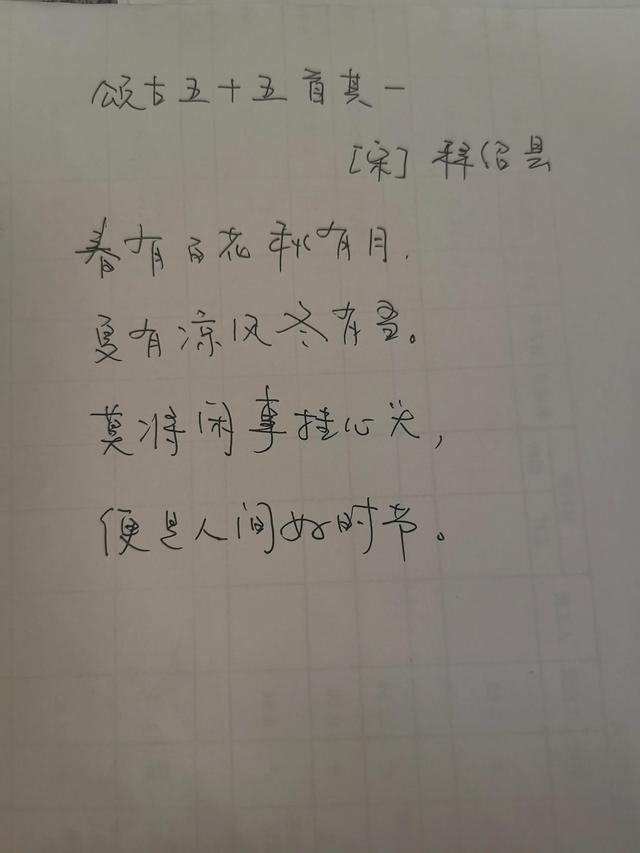 颂古五十五首其一
[宋] 释绍昙
春有百花秋有月.
夏有凉风冬有雪。
莫将闲事挂心头,
便是人间好时节。